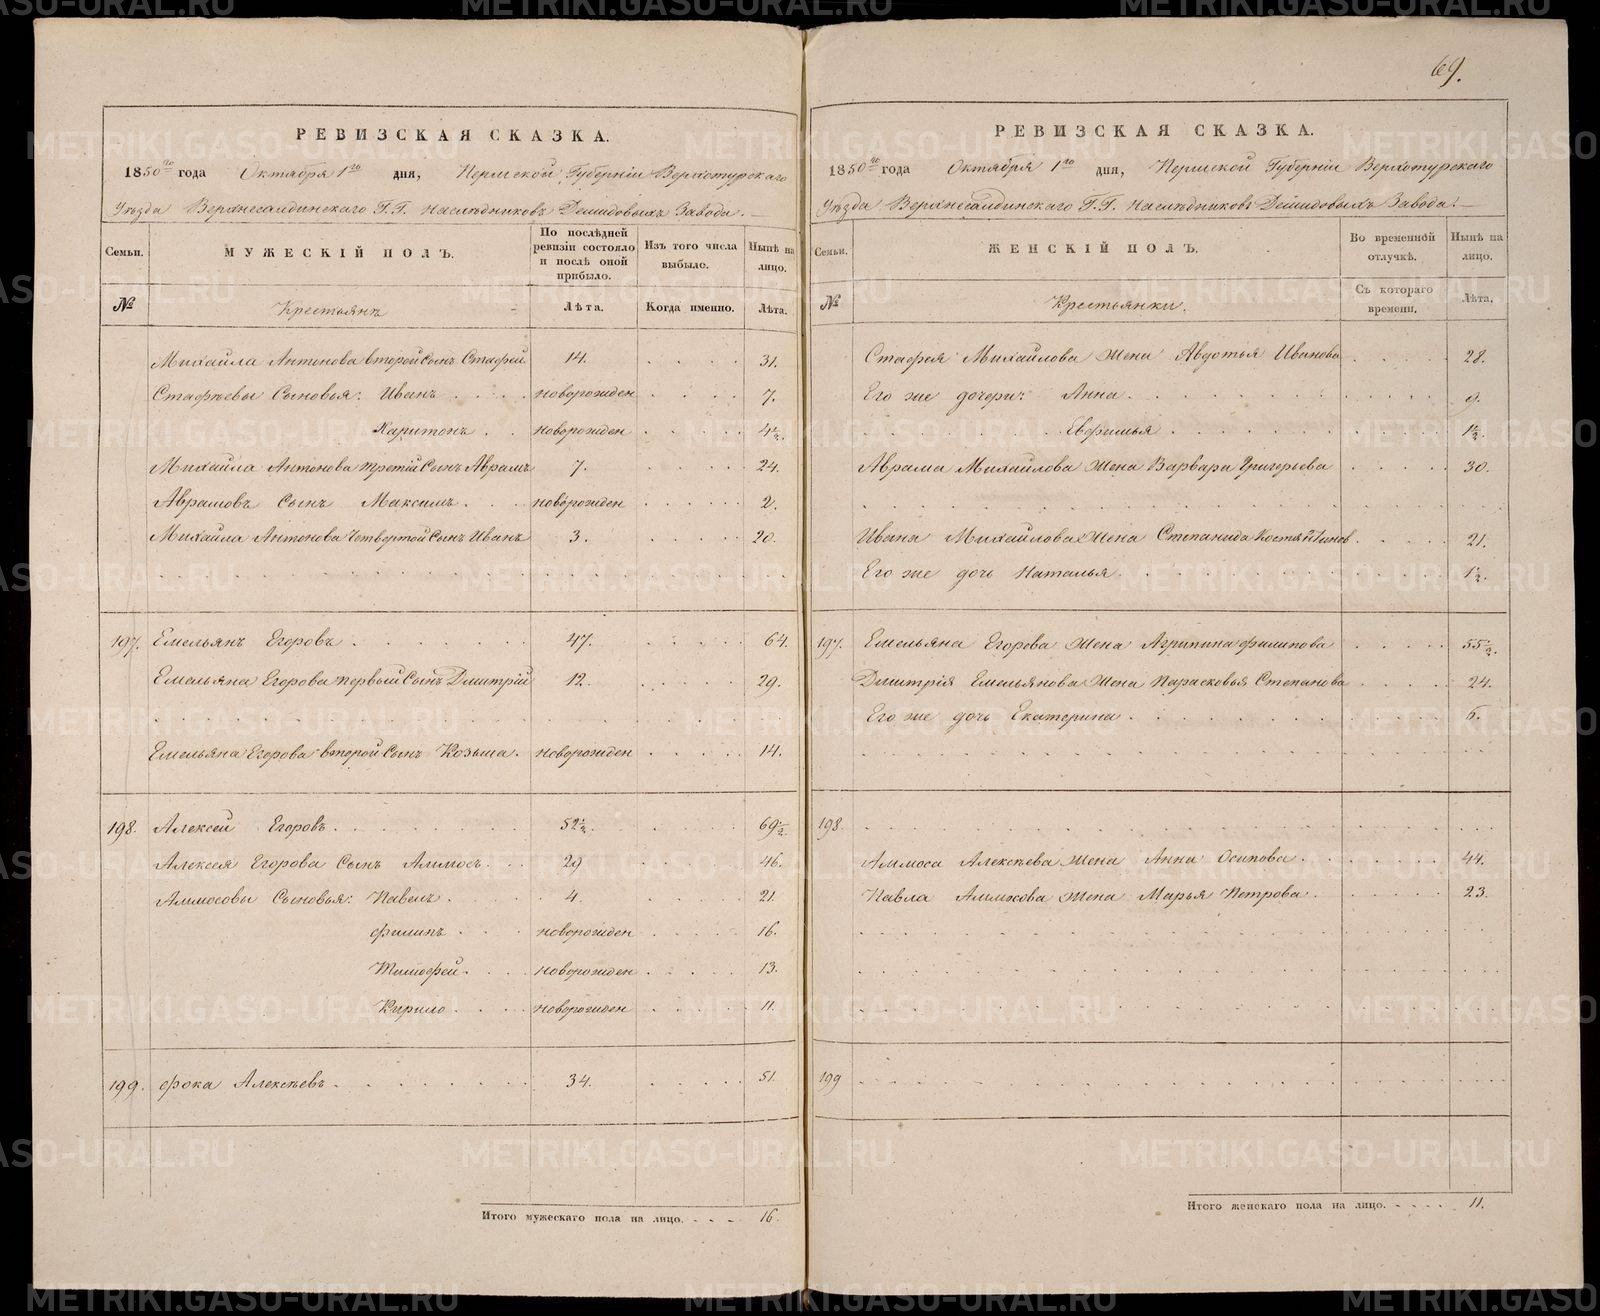 69.
РЕВИЗСКАЯ СКАЗКА.
1850го года Октября 1го дня, Пермской Губернiи Верхотурскаго
Уѣзда Верхнесалдинскаго Г.Г. Наслѣдниковъ Демидовыхъ Завода.
Семьи. МУЖЕСКIЙ ПОЛЪ. По послѣдней ревизiи состояло и послѣ оной прибыло. Изъ того числа выбыло. Нынѣ на лицо.
№ Крестьянъ Лѣта. Когда именно. Лѣта.
Михайла Антонова второй сынъ Стафей 14. 31.
Стафѣевы Сыновья: Иванъ новорожден 7.
Харитонъ новорожден 4½.
Михайла Антонова третiй сынъ Аврамъ 7. 24.
Аврамовъ Сынъ Максимъ новорожден 2.
Михайла Антонова Четвертой сынъ Иванъ 3. 20.
197. Емельянъ Егоровъ 47. 64.
Емельяна Егорова первый Сынъ Дмитрiй 12. 29.
Емельяна Егорова второй Сынъ Козьма новорожден 14.
198. Алексей Егоровъ 52½. 69½
Алексея Егорова Сынъ Аммосъ 29 46.
Аммосовы Сыновья: Павелъ 4. 21
Филипъ новорожден 16.
Тимофей новорожден 13.
Кирило новорожден 11.
199. Фока Алексѣевъ 34. 51
Итого мужескаго пола на лицо. 16.
РЕВИЗСКАЯ СКАЗКА.
1850го года Октября 1го дня, Пермской Губернiи Верхотурскаго
Уѣзда Верхнесалдинскаго Г.Г. Наслѣдниковъ Демидовыхъ Завода.
Семьи. ЖЕНСКIЙ ПОЛЪ. Во временной отлучкѣ. Нынѣ на лицо.
№ Крестьянки. Съ котораго времени. Лѣта.
Стафея Михайлова жена Авдотья Иванова 28.
Его же дочери: Анна 9.
Евфимья 1½.
Аврама Михайлова жена Варвара Григорьева 30.
Ивана Михайлова жена Степанида Костянтинов 21.
Его же дочь Наталья 1½.
197. Емельяна Егорова жена Агрипина Филипова 55½.
Дмитрiя Емельянова жена Парасковья Степанова 24.
Его же дочь Екатерина 6.
198.
Аммоса Алексѣева жена Анна Осипова 44.
Павла Аммосова жена Марья Петрова 23.
199
Итого женскаго пола на лицо. 11.
METRIKI.GASO-URAL.RU